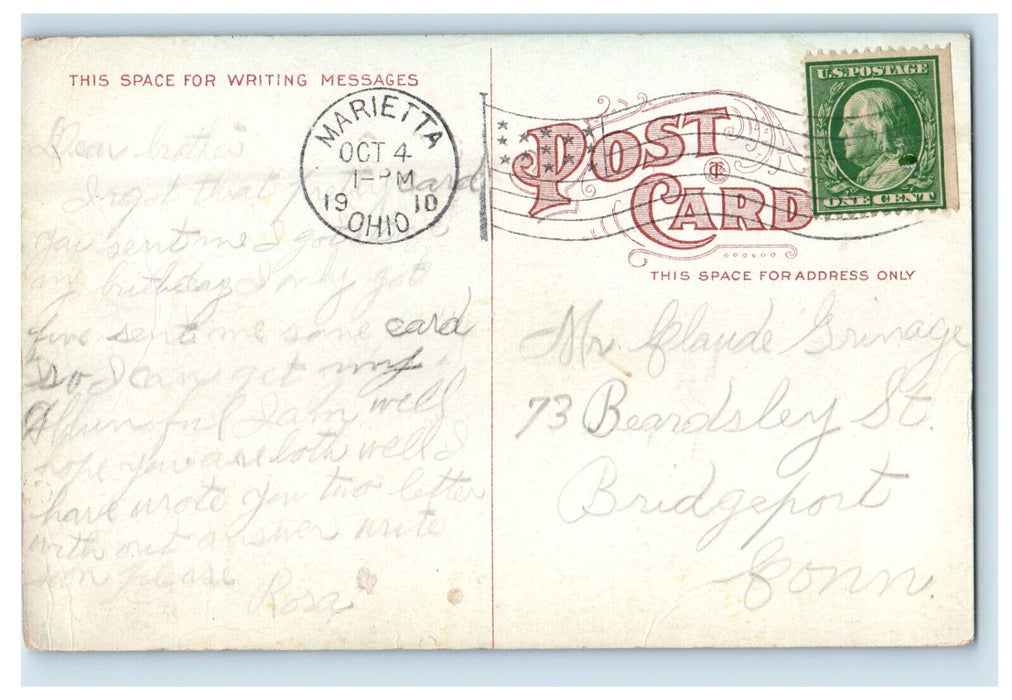 THIS SPACE FOR WRITING MESSAGES
Dear brother
I got that pretty card
you sent me I got
my birthday I only got
five sent me some card
so I can get my
Album full I am well
hope you are both well I
have wrote you two letter
with out answer write
soon please
Rosa
MARIETTA
OCT 4
1-PM
1910
OHIO
U.S. POSTAGE
ONE CENT
POST
CARD
THIS SPACE FOR ADDRESS ONLY
Mr. Claude Grinage
73 Beardsley St.
Bridgeport
Conn.